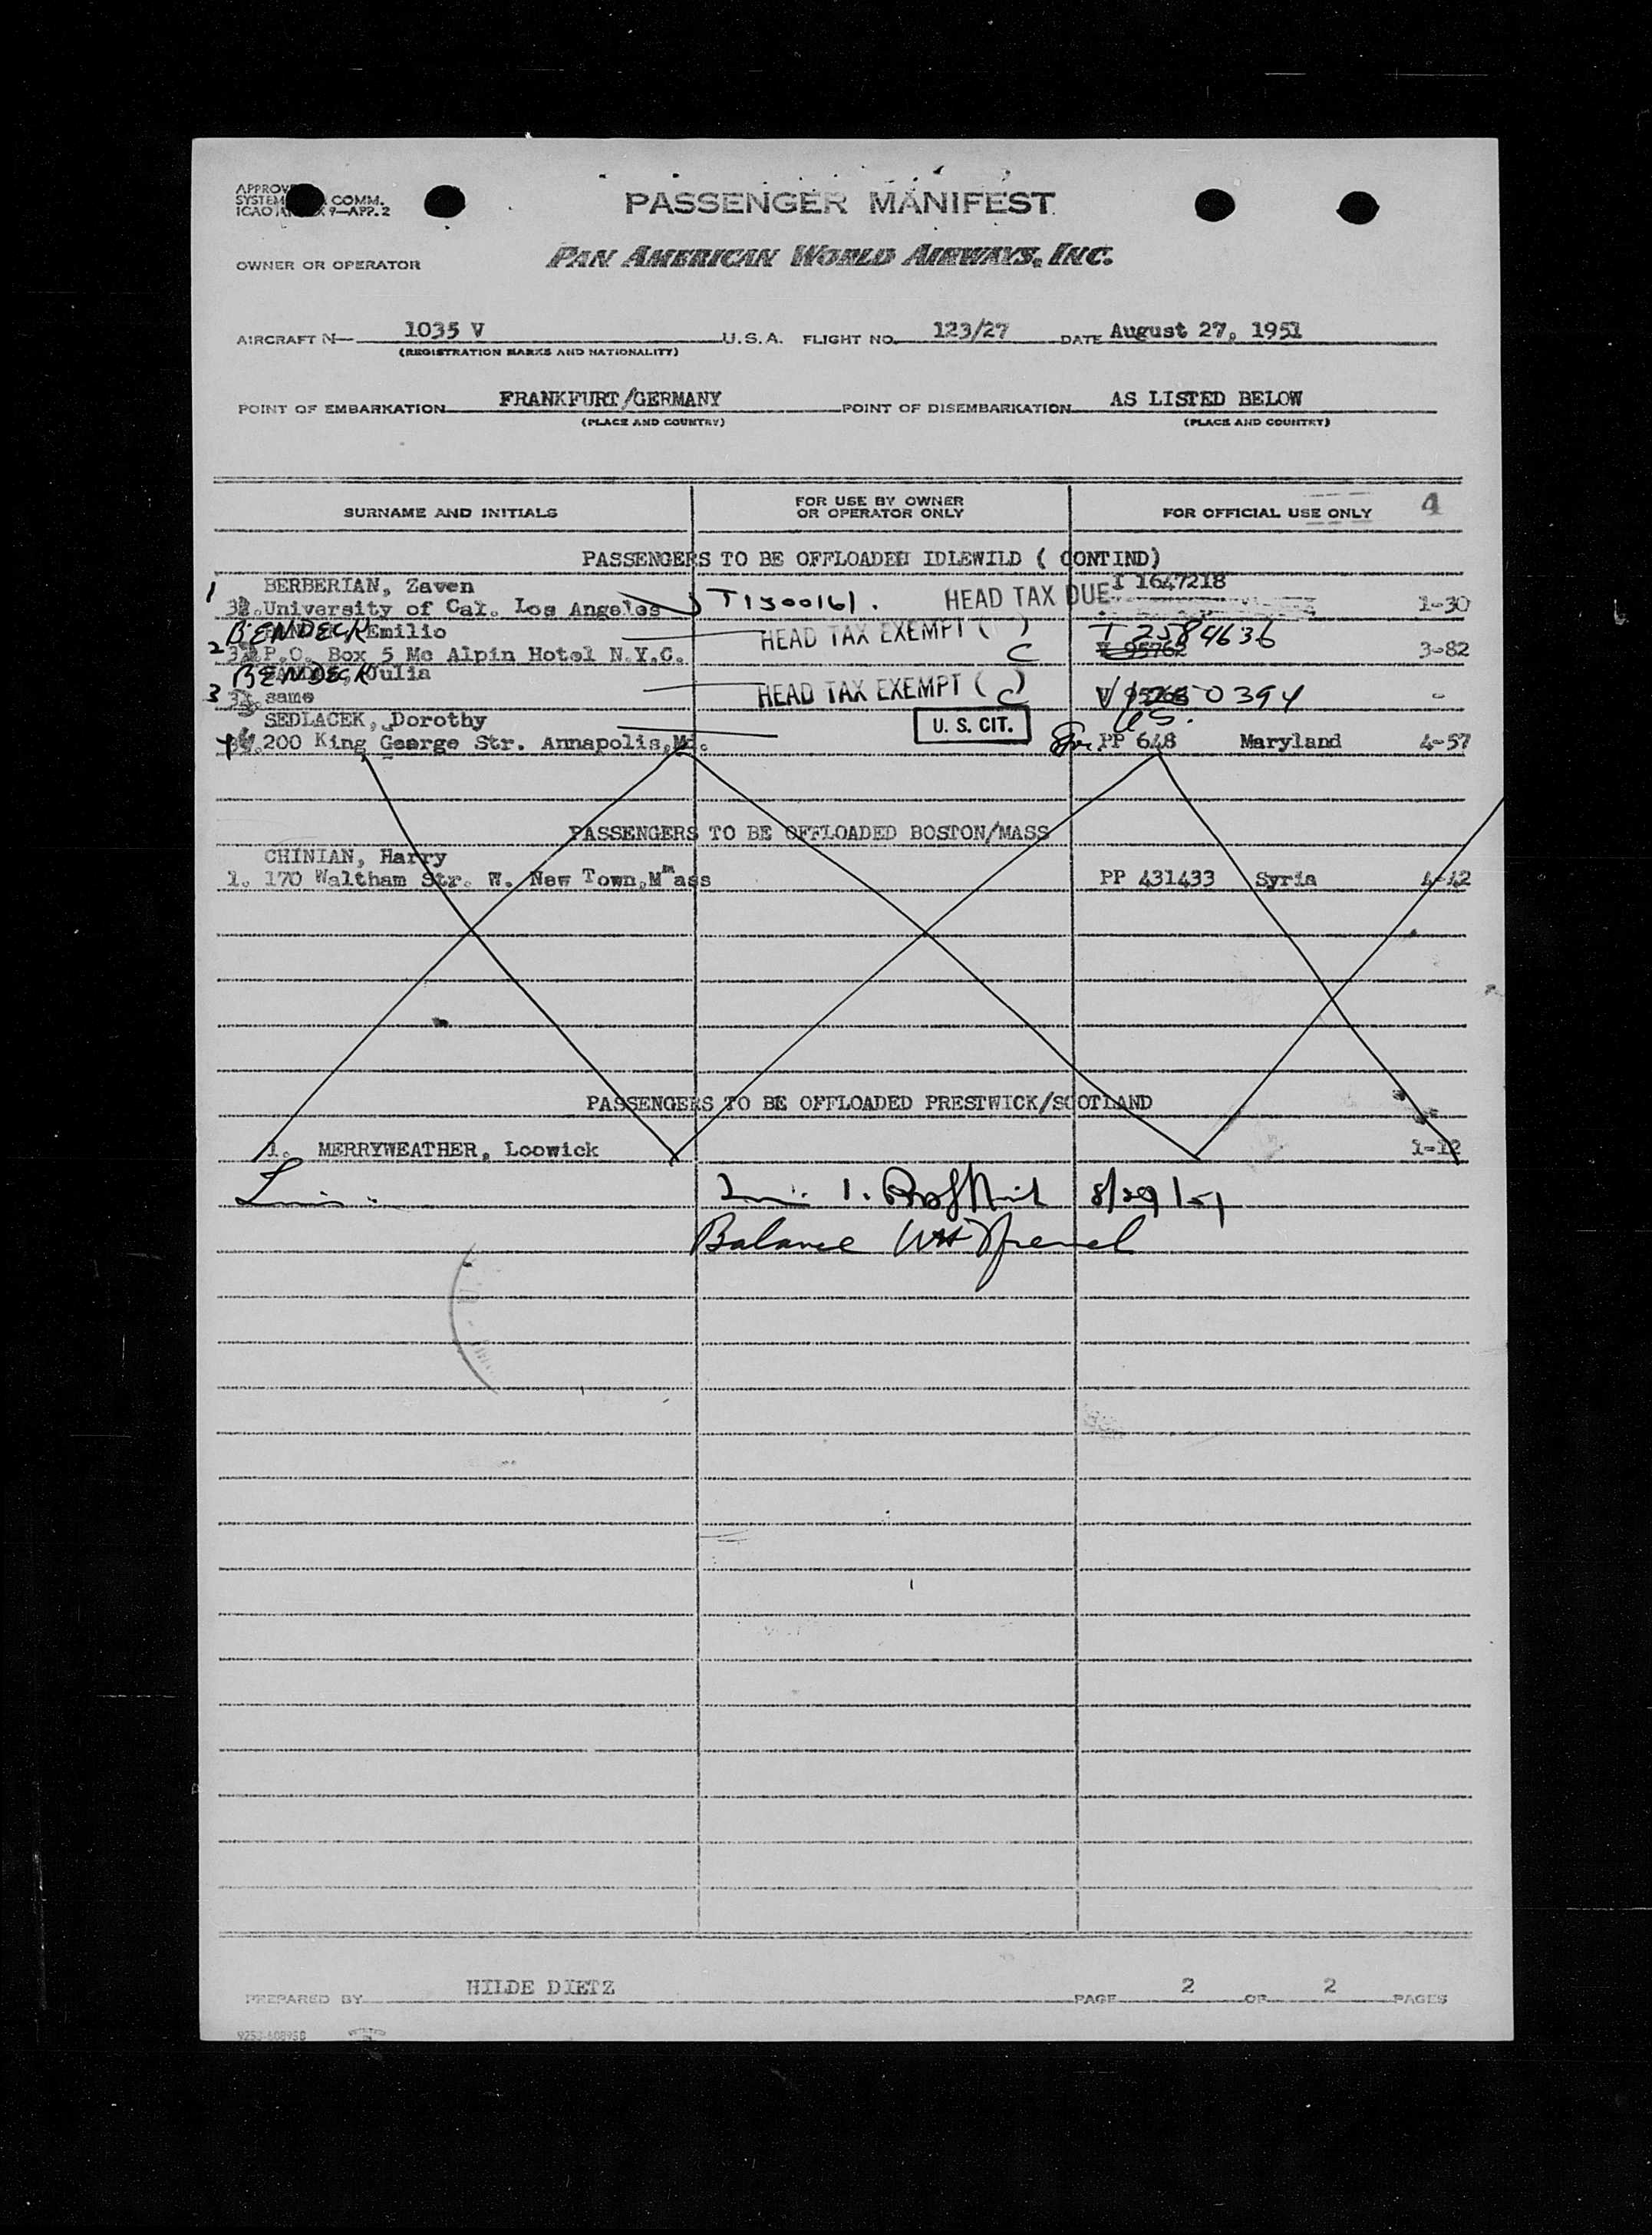 PASSENGER MANIFEST
COMM.
9—APP. 2
OWNER OR OPERATOR PAN AMERICAN WORLD AIRWAYS, INC.
AIRCRAFT N— 1035 V U.S.A. FLIGHT NO. 123/27 DATE August 27, 1951
(REGISTRATION MARKS AND NATIONALITY)
POINT OF EMBARKATION FRANKFURT/GERMANY POINT OF DISEMBARKATION AS LISTED BELOW
(PLACE AND COUNTRY) (PLACE AND COUNTRY)
SURNAME AND INITIALS FOR USE BY OWNER OR OPERATOR ONLY FOR OFFICIAL USE ONLY 4
PASSENGERS TO BE OFFLOADED IDLEWILD ( CONTIND)
1 BERBERIAN, Zaven I 1647218
University of Cal. Los Angeles T1500161. HEAD TAX DUE 1-30
BENDECK Emilio HEAD TAX EXEMPT ( ) T 2584636
2 P.O. Box 5 Mc Alpin Hotel N.Y.C. C V 95762 3-82
BENDECK Julia HEAD TAX EXEMPT ( C )
3 same 0394 -
SEDLACEK, Dorothy U. S. CIT. US.
4 200 King George Str. Annapolis,Md. PP 648 Maryland 4-57
PASSENGERS TO BE OFFLOADED BOSTON/MASS
CHINIAN, Harry
1. 170 Waltham Str. W. New Town,Mass PP 431433 Syria 4-42
PASSENGERS TO BE OFFLOADED PRESTWICK/SCOTLAND
1. MERRYWEATHER, Loowick 1-12
8/29/51
Balance
PREPARED BY HILDE DIETZ PAGE 2 OF 2 PAGES